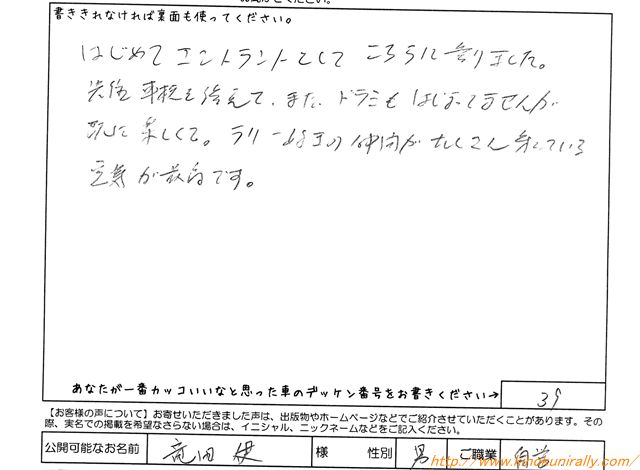 書ききれなければ裏面も使ってください。
はじめてエントラントとしてこちらに参りました。
車検を終えて、また、ドラミもはじまってませんが
既に楽しくて。ラリー好きの仲間がたくさん集っている
空気が最高です。
あなたが一番カッコいいなと思った車のデッケン番号をお書きください→ 39
【お客様の声について】お寄せいただきました声は、出版物やホームページなどでご紹介させていただくことがあります。その
際、実名での掲載を希望なさらない場合は、イニシャル、ニックネームなどをご記入ください。
公開可能なお名前 竜田 健 様 性別 男 ご職業 自営
http://www.shobunirally.com/